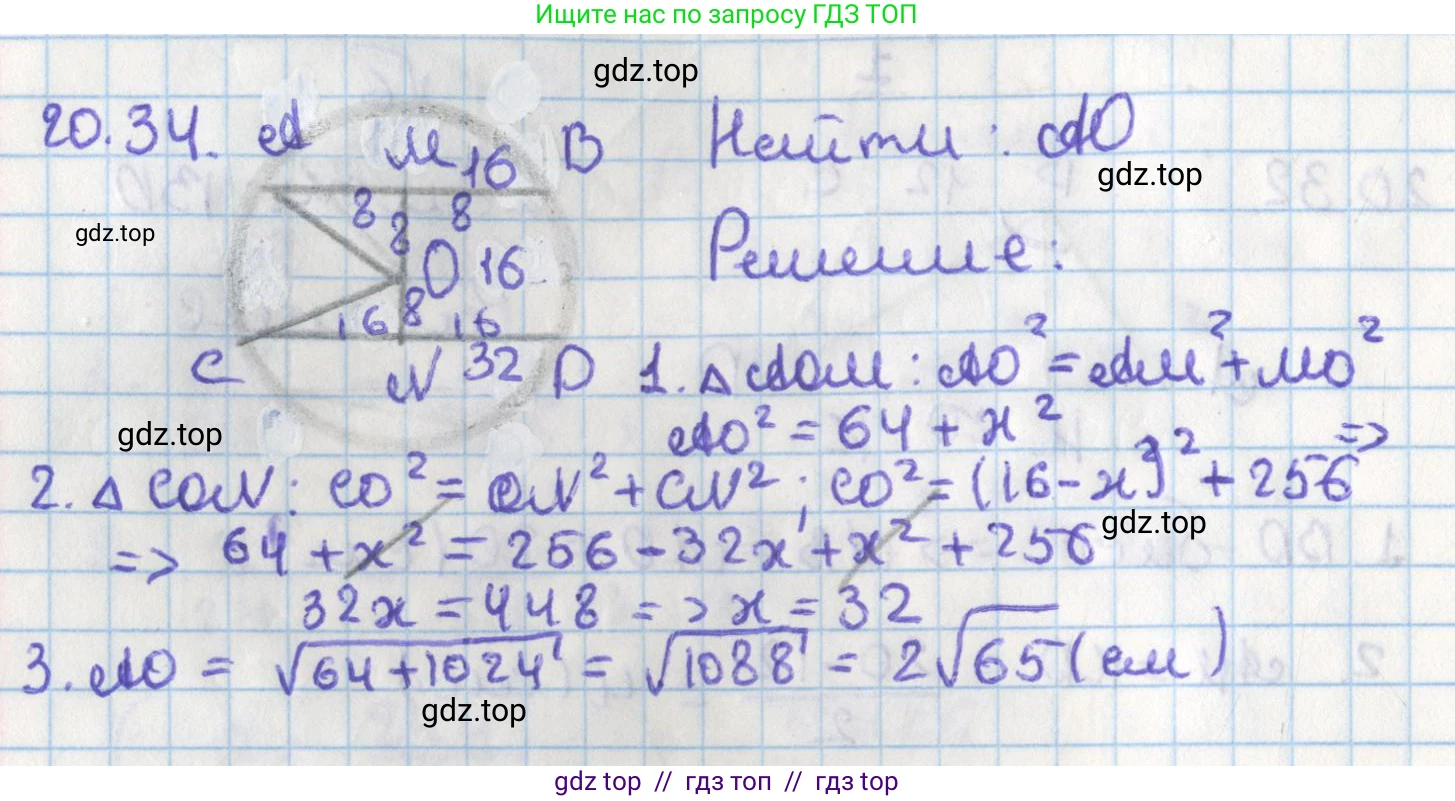 Ищите нас по запросу ГДЗ ТОП
gdz.top
20.34. A M 16 B Найти: AO
gdz.top
8 8 8
gdz.top
O 16
Решение:
16 8 16
C N 32 D 1. △AOM: AO² = AM² + MO²
gdz.top
AO² = 64 + x² =>
2. △CON: CO² = ON² + CN²; CO² = (16-x)² + 256
gdz.top
=> 64 + x² = 256 - 32x + x² + 256
32x = 448 => x = 32
3. AO = √64+1024 = √1088 = 2√65 (см)
gdz.top
gdz top // гдз топ // гдз top